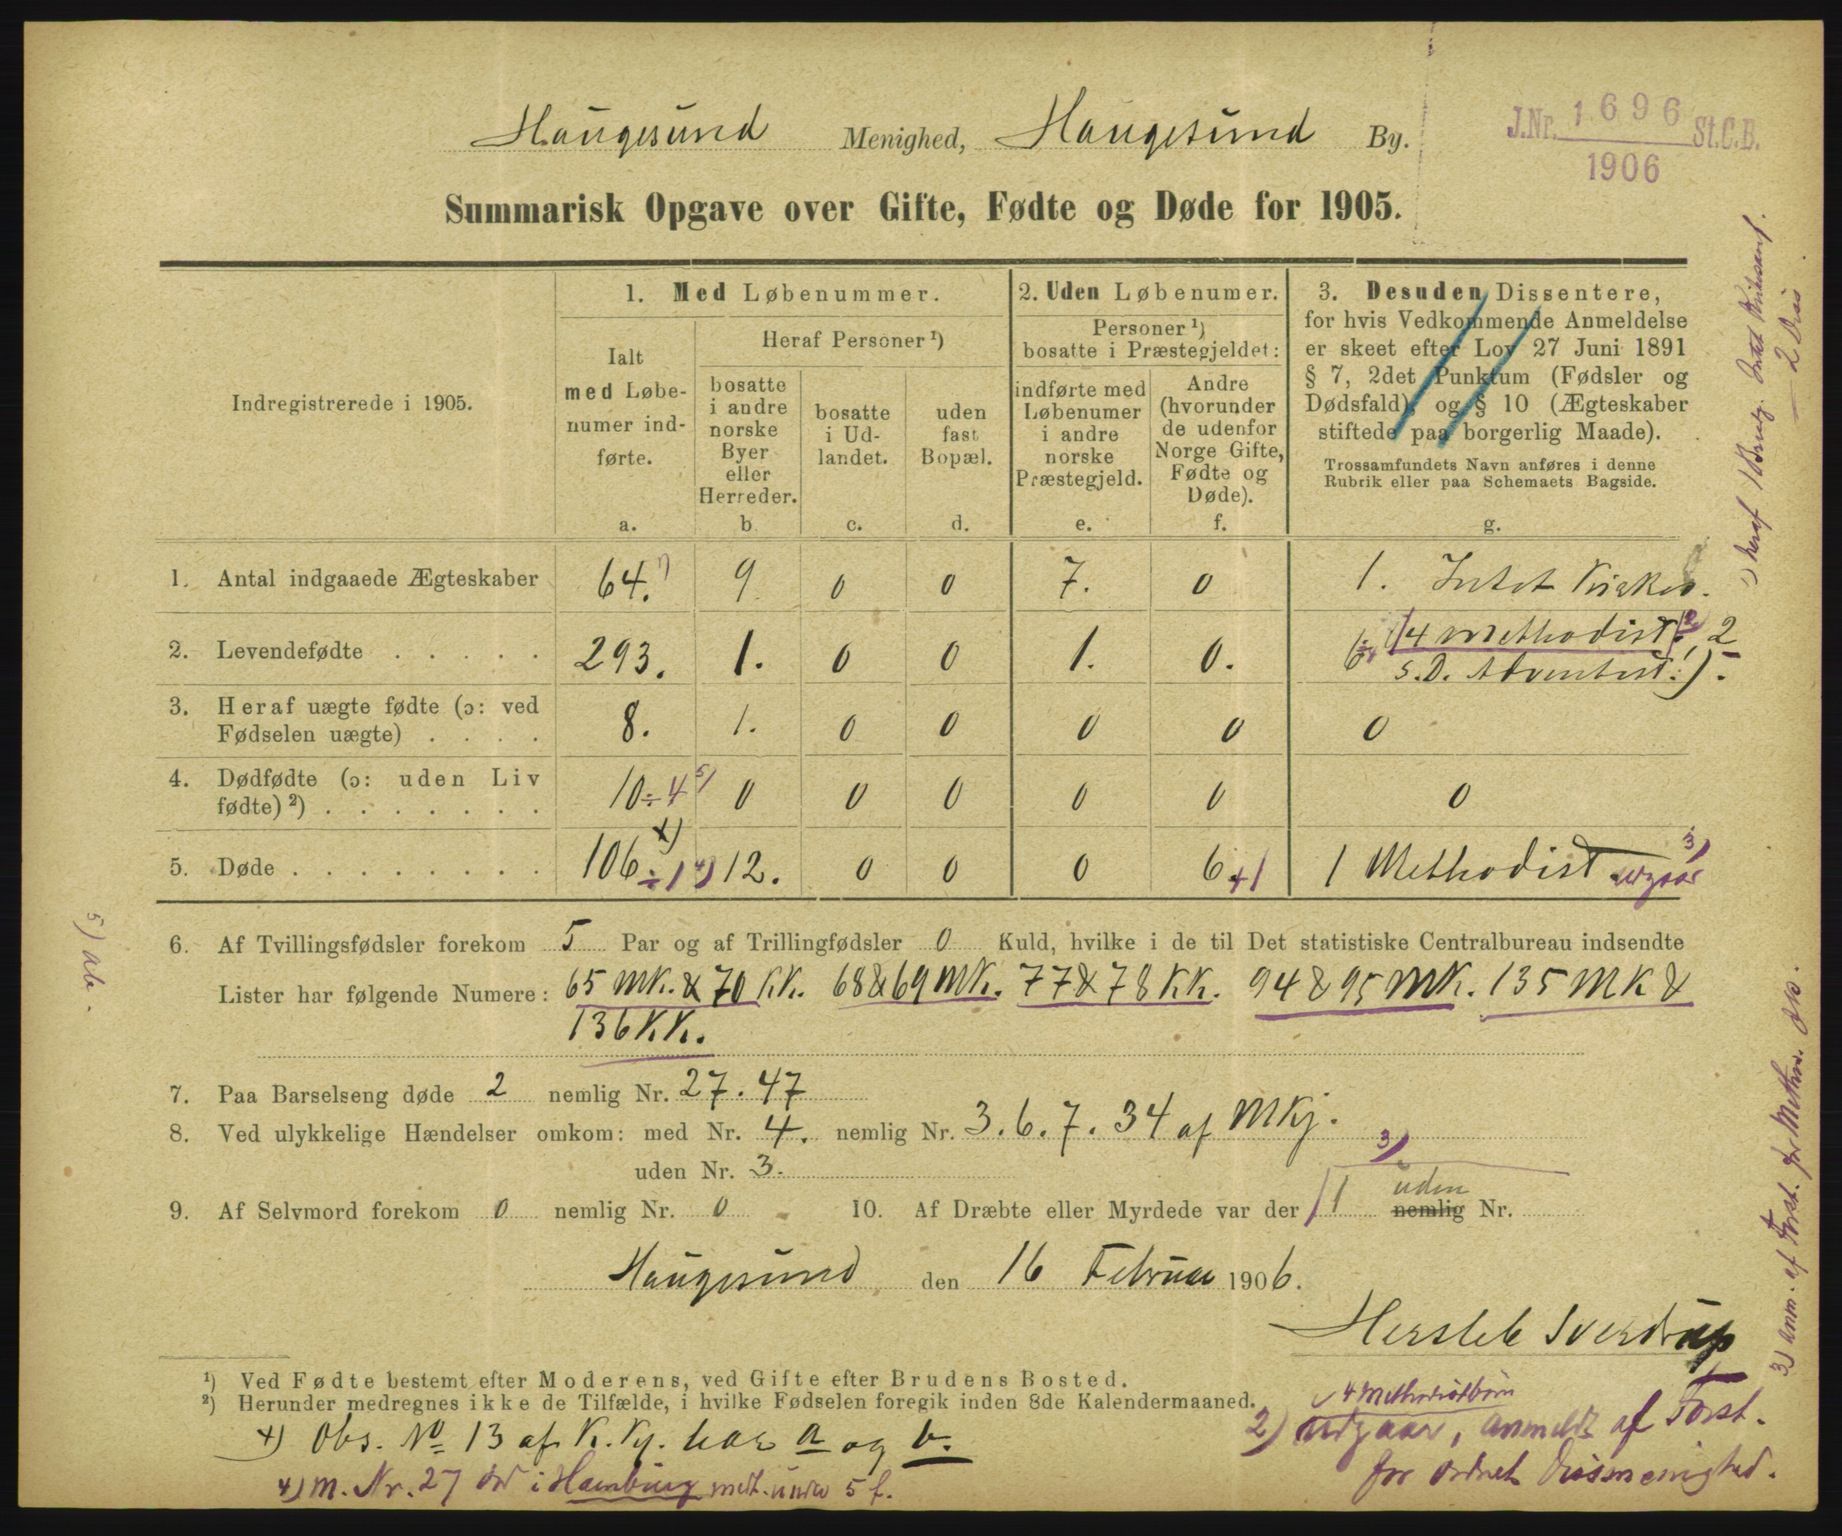 Haugesund Menighed, Haugesund By.
J.Nr. 1696 St.C.B.
1906
Summarisk Opgave over Gifte, Fødte og Døde for 1905.
Indregistrerede i 1905.
1. Med Løbenummer.
Ialt
med Løbe-
numer ind-
førte.
a.
Heraf Personer ¹)
bosatte
i andre
norske
Byer
eller
Herreder.
b
bosatte
i Ud-
landet.
c.
uden
fast
Bopæl.
d.
2. Uden Løbenumer.
Personer ¹)
bosatte i Præstegjeldet:
indførte med
Løbenumer
i andre
norske
Præstegjeld.
e.
Andre
(hvorunder
de udenfor
Norge Gifte,
Fødte og
Døde).
f.
3. Desuden Dissentere,
for hvis Vedkommende Anmeldelse
er skeet efter Lov 27 Juni 1891
§ 7, 2det Punktum (Fødsler og
Dødsfald), og § 10 (Ægteskaber
stiftede paa borgerlig Maade).
Trossamfundets Navn anføres i denne
Rubrik eller paa Schemaets Bagside.
g.
1. Antal indgaaede Ægteskaber 64. ¹) 9 0 0 7. 0 1. Intet Kirkes.
2. Levendefødte 293. 1. 0 0 1. 0. 6 (4 Methodist. ²) 2
S.D. Adventist:).
3. Heraf uægte fødte (ɔ: ved
Fødselen uægte) 8. 1. 0 0 0 0 0
4. Dødfødte (ɔ: uden Liv
fødte) ²) 10 ÷ 4 ⁵) 0 0 0 0 0 0
5. Døde 106 ×) ÷ 1 ⁴) 12. 0 0 0 6. + 1 1 Methodist ³) udgaar
6. Af Tvillingsfødsler forekom 5 Par og af Trillingfødsler 0 Kuld, hvilke i de til Det statistiske Centralbureau indsendte
Lister har følgende Numere: 65 MK. & 70 KK. 68 & 69 MK. 77 & 78 KK. 94 & 95 MK. 135 MK &
136 KK.
7. Paa Barselseng døde 2 nemlig Nr. 27. 47
8. Ved ulykkelige Hændelser omkom: med Nr. 4. nemlig Nr. 3. 6. 7. 34 af MKj.
uden Nr. 3.
9. Af Selvmord forekom 0 nemlig Nr. 0 10. Af Dræbte eller Myrdede var der 1 ³) uden nemlig Nr.
Haugesund den 16 Februar 1906.
Hersleb Sverdrup
¹) Ved Fødte bestemt efter Moderens, ved Gifte efter Brudens Bosted.
²) Herunder medregnes ikke de Tilfælde, i hvilke Fødselen foregik inden 8de Kalendermaaned.
×) Obs. No 13 af K.Kj. har a og b.
4) M. Nr. 27 død i Hamburg medt. under 5 f.
4 Methodistbørn
2) udgaar, anmeldt af Forst.
for ordnet Dissmenighed.
1) heraf 1 Brudg. Intet Kirkesamf.
2 Diss
3) anm. af Forst. for Methm.
5) Ab.